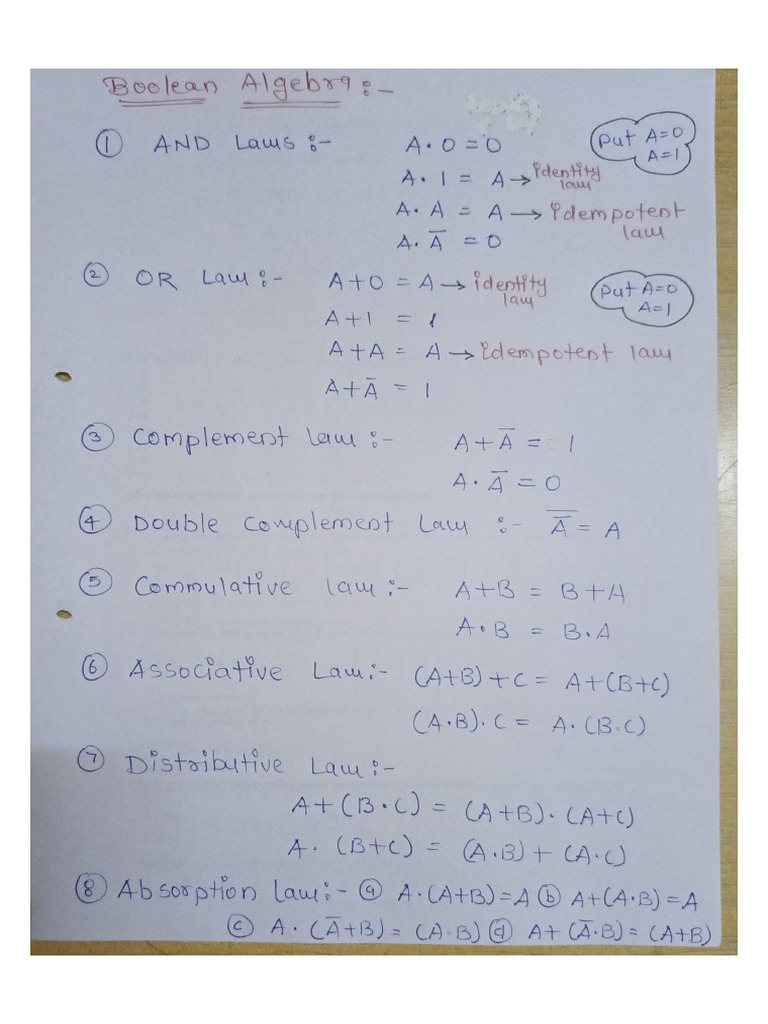 Boolean Algebra :-
① AND Laws :- A·0 = 0
Put A=0
A=1
A·1 = A → identity law
A·A = A → idempotent law
A·A̅ = 0
② OR Law :- A+0 = A → identity law
Put A=0
A=1
A+1 = 1
A+A = A → idempotent law
A+A̅ = 1
③ Complement Law :- A+A̅ = 1
A·A̅ = 0
④ Double Complement Law :- A̿ = A
⑤ Commulative law :- A+B = B+A
A·B = B·A
⑥ Associative Law :- (A+B)+C = A+(B+C)
(A·B)·C = A·(B·C)
⑦ Distributive Law :-
A+(B·C) = (A+B)·(A+C)
A·(B+C) = (A·B)+(A·C)
⑧ Absorption Law :- ⓐ A·(A+B)=A ⓑ A+(A·B)=A
ⓒ A·(A̅+B) = (A·B) ⓓ A+(A̅·B) = (A+B)